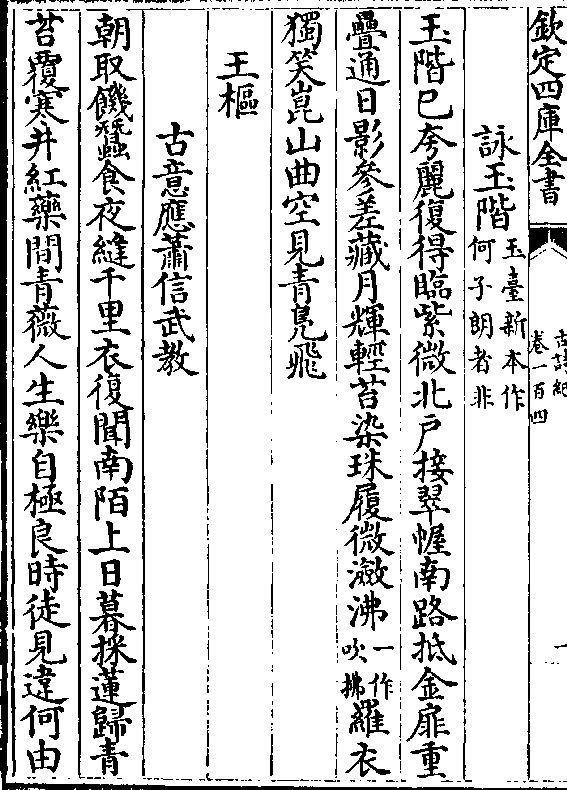 欽定四庫全書
古詩紀
卷一百四
詠玉階玉臺新本作何子朗者非
玉階已夸麗復得臨紫微北戶接翠幄南路抵金扉重
疊通日影參差藏月輝輕苔染珠履微瀲沸一作吹拂羅衣
獨笑崑山曲空見青鳧飛
王樞
古意應蕭信武教
朝取饑蠶食夜縫千里衣復聞南陌上日暮採蓮歸青
苔覆寒井紅藥間青薇人生樂自極良時徒見違何由